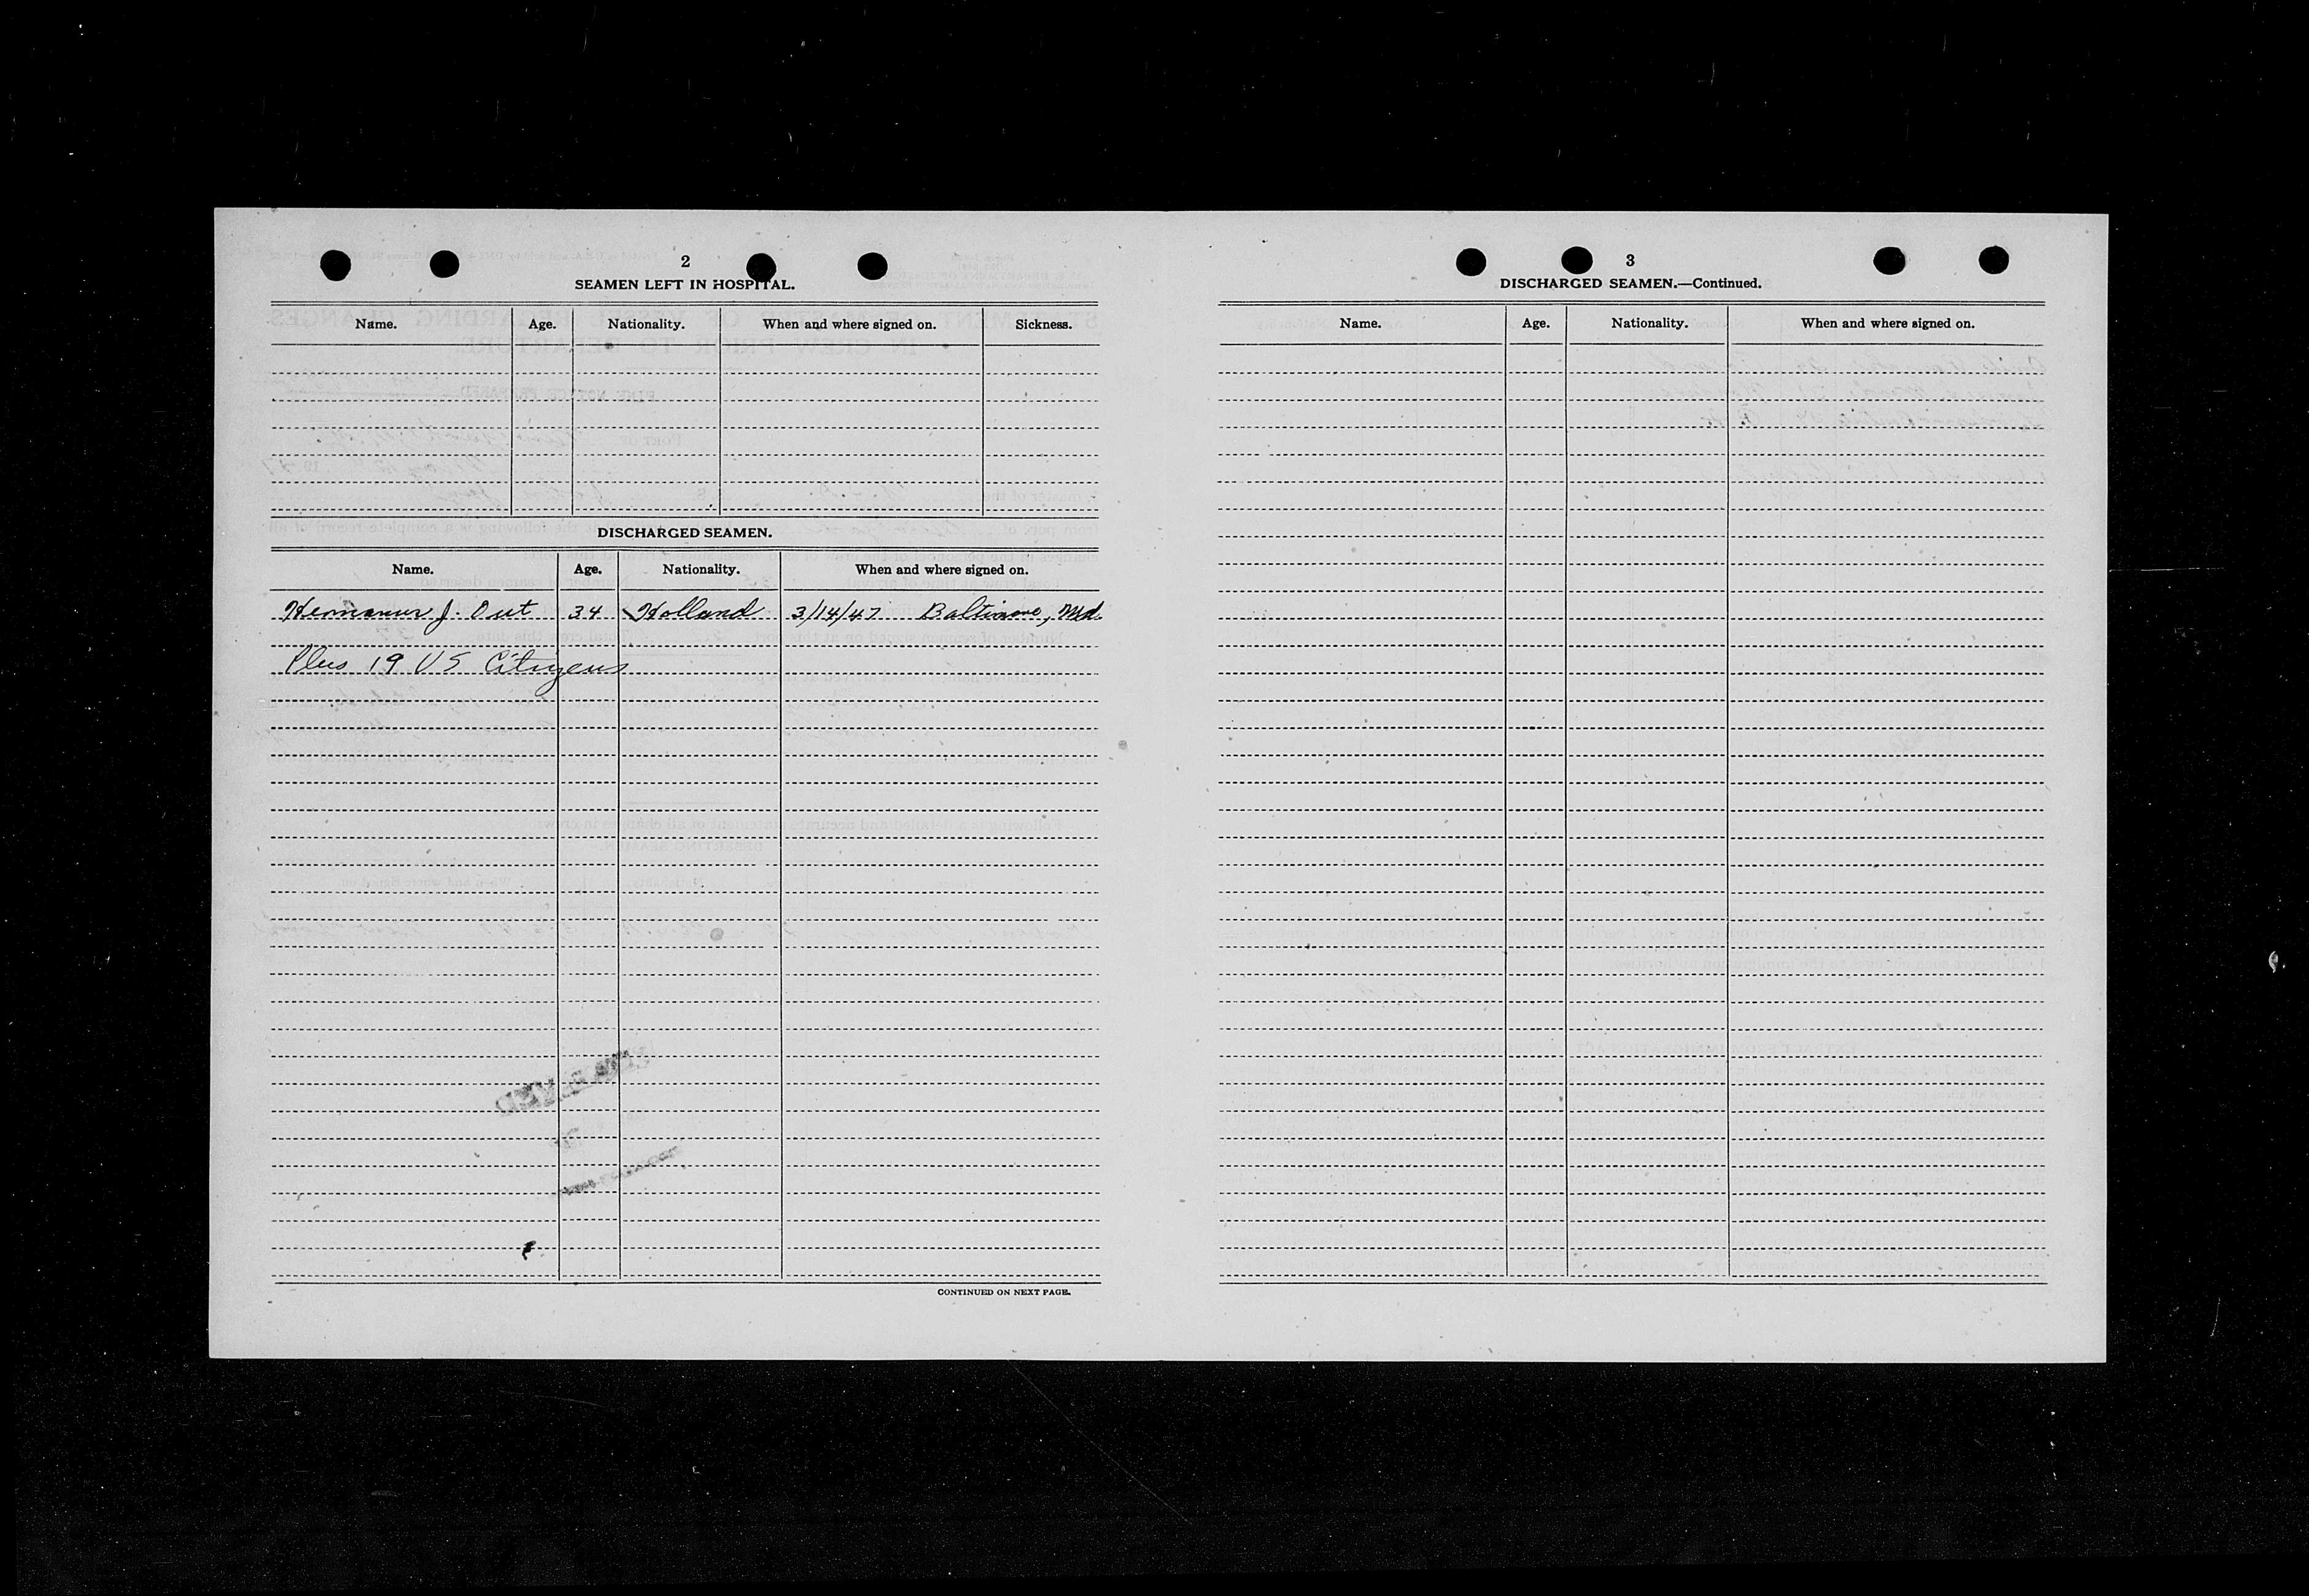 2
SEAMEN LEFT IN HOSPITAL.
Name. Age. Nationality. When and where signed on. Sickness.
DISCHARGED SEAMEN.
Name. Age. Nationality. When and where signed on.
Hermanus J. Out 34 Holland 3/14/47 Baltimore, Md.
Plus 19 US Citizens
CONTINUED ON NEXT PAGE.
3
DISCHARGED SEAMEN.—Continued.
Name. Age. Nationality. When and where signed on.